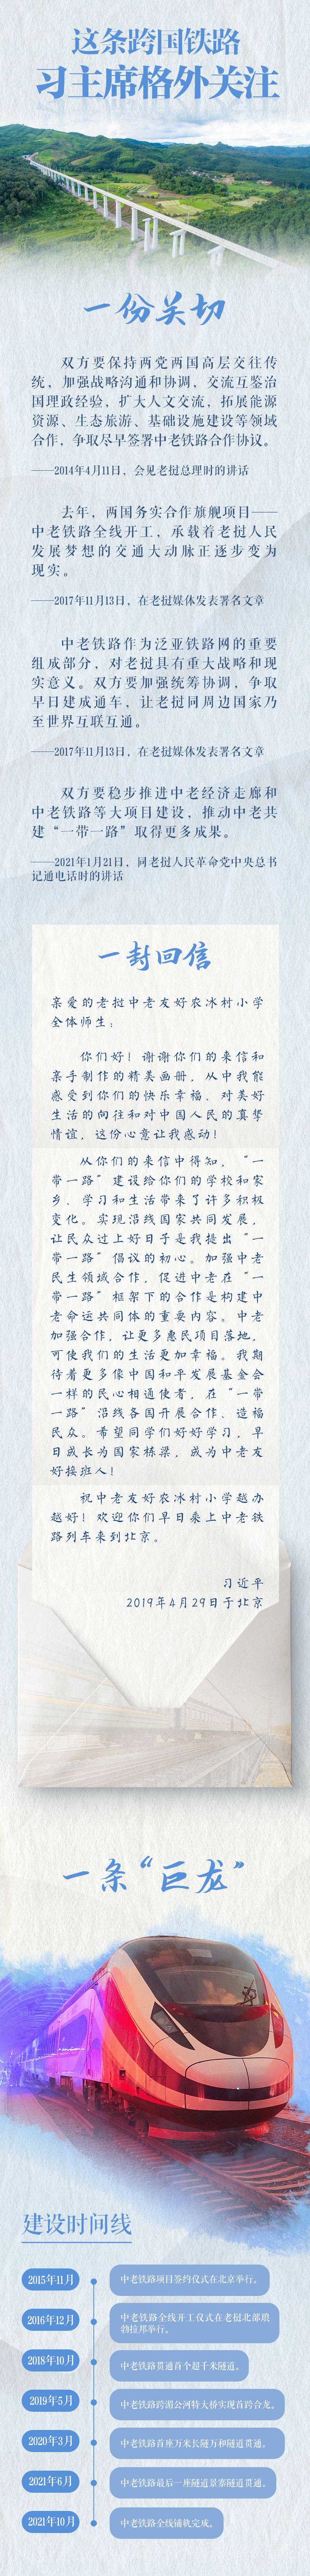 这条跨国铁路
习主席格外关注
一份关切
双方要保持两党两国高层交往传
统，加强战略沟通和协调，交流互鉴治
国理政经验，扩大人文交流，拓展能源
资源、生态旅游、基础设施建设等领域
合作，争取尽早签署中老铁路合作协议。
——2014年4月11日，会见老挝总理时的讲话
去年，两国务实合作旗舰项目——
中老铁路全线开工，承载着老挝人民
发展梦想的交通大动脉正逐步变为
现实。
——2017年11月13日，在老挝媒体发表署名文章
中老铁路作为泛亚铁路网的重要
组成部分，对老挝具有重大战略和现
实意义。双方要加强统筹协调，争取
早日建成通车，让老挝同周边国家乃
至世界互联互通。
——2017年11月13日，在老挝媒体发表署名文章
双方要稳步推进中老经济走廊和
中老铁路等大项目建设，推动中老共
建“一带一路”取得更多成果。
——2021年1月21日，同老挝人民革命党中央总书
记通电话时的讲话
一封回信
亲爱的老挝中老友好农冰村小学
全体师生：
你们好！谢谢你们的来信和
亲手制作的精美画册，从中我能
感受到你们的快乐幸福、对美好
生活的向往和对中国人民的真挚
情谊，这份心意让我感动！
从你们的来信中得知，“一
带一路”建设给你们的学校和家
乡、学习和生活带来了许多积极
变化。实现沿线国家共同发展，
让民众过上好日子是我提出“一
带一路”倡议的初心。加强中老
民生领域合作，促进中老在“一
带一路”框架下的合作是构建中
老命运共同体的重要内容。中老
加强合作，让更多惠民项目落地，
可使我们的生活更加幸福。我期
待着更多像中国和平发展基金会
一样的民心相通使者，在“一带
一路”沿线各国开展合作、造福
民众。希望同学们好好学习，早
日成长为国家栋梁，成为中老友
好接班人！
祝中老友好农冰村小学越办
越好！欢迎你们早日乘上中老铁
路列车来到北京。
习近平
2019年4月29日于北京
一条“巨龙”
建设时间线
2015年11月
中老铁路项目签约仪式在北京举行。
2016年12月
中老铁路全线开工仪式在老挝北部琅
勃拉邦举行。
2018年10月
中老铁路贯通首个超千米隧道。
2019年5月
中老铁路跨湄公河特大桥实现首跨合龙。
2020年3月
中老铁路首座万米长隧万和隧道贯通。
2021年6月
中老铁路最后一座隧道景寨隧道贯通。
2021年10月
中老铁路全线铺轨完成。